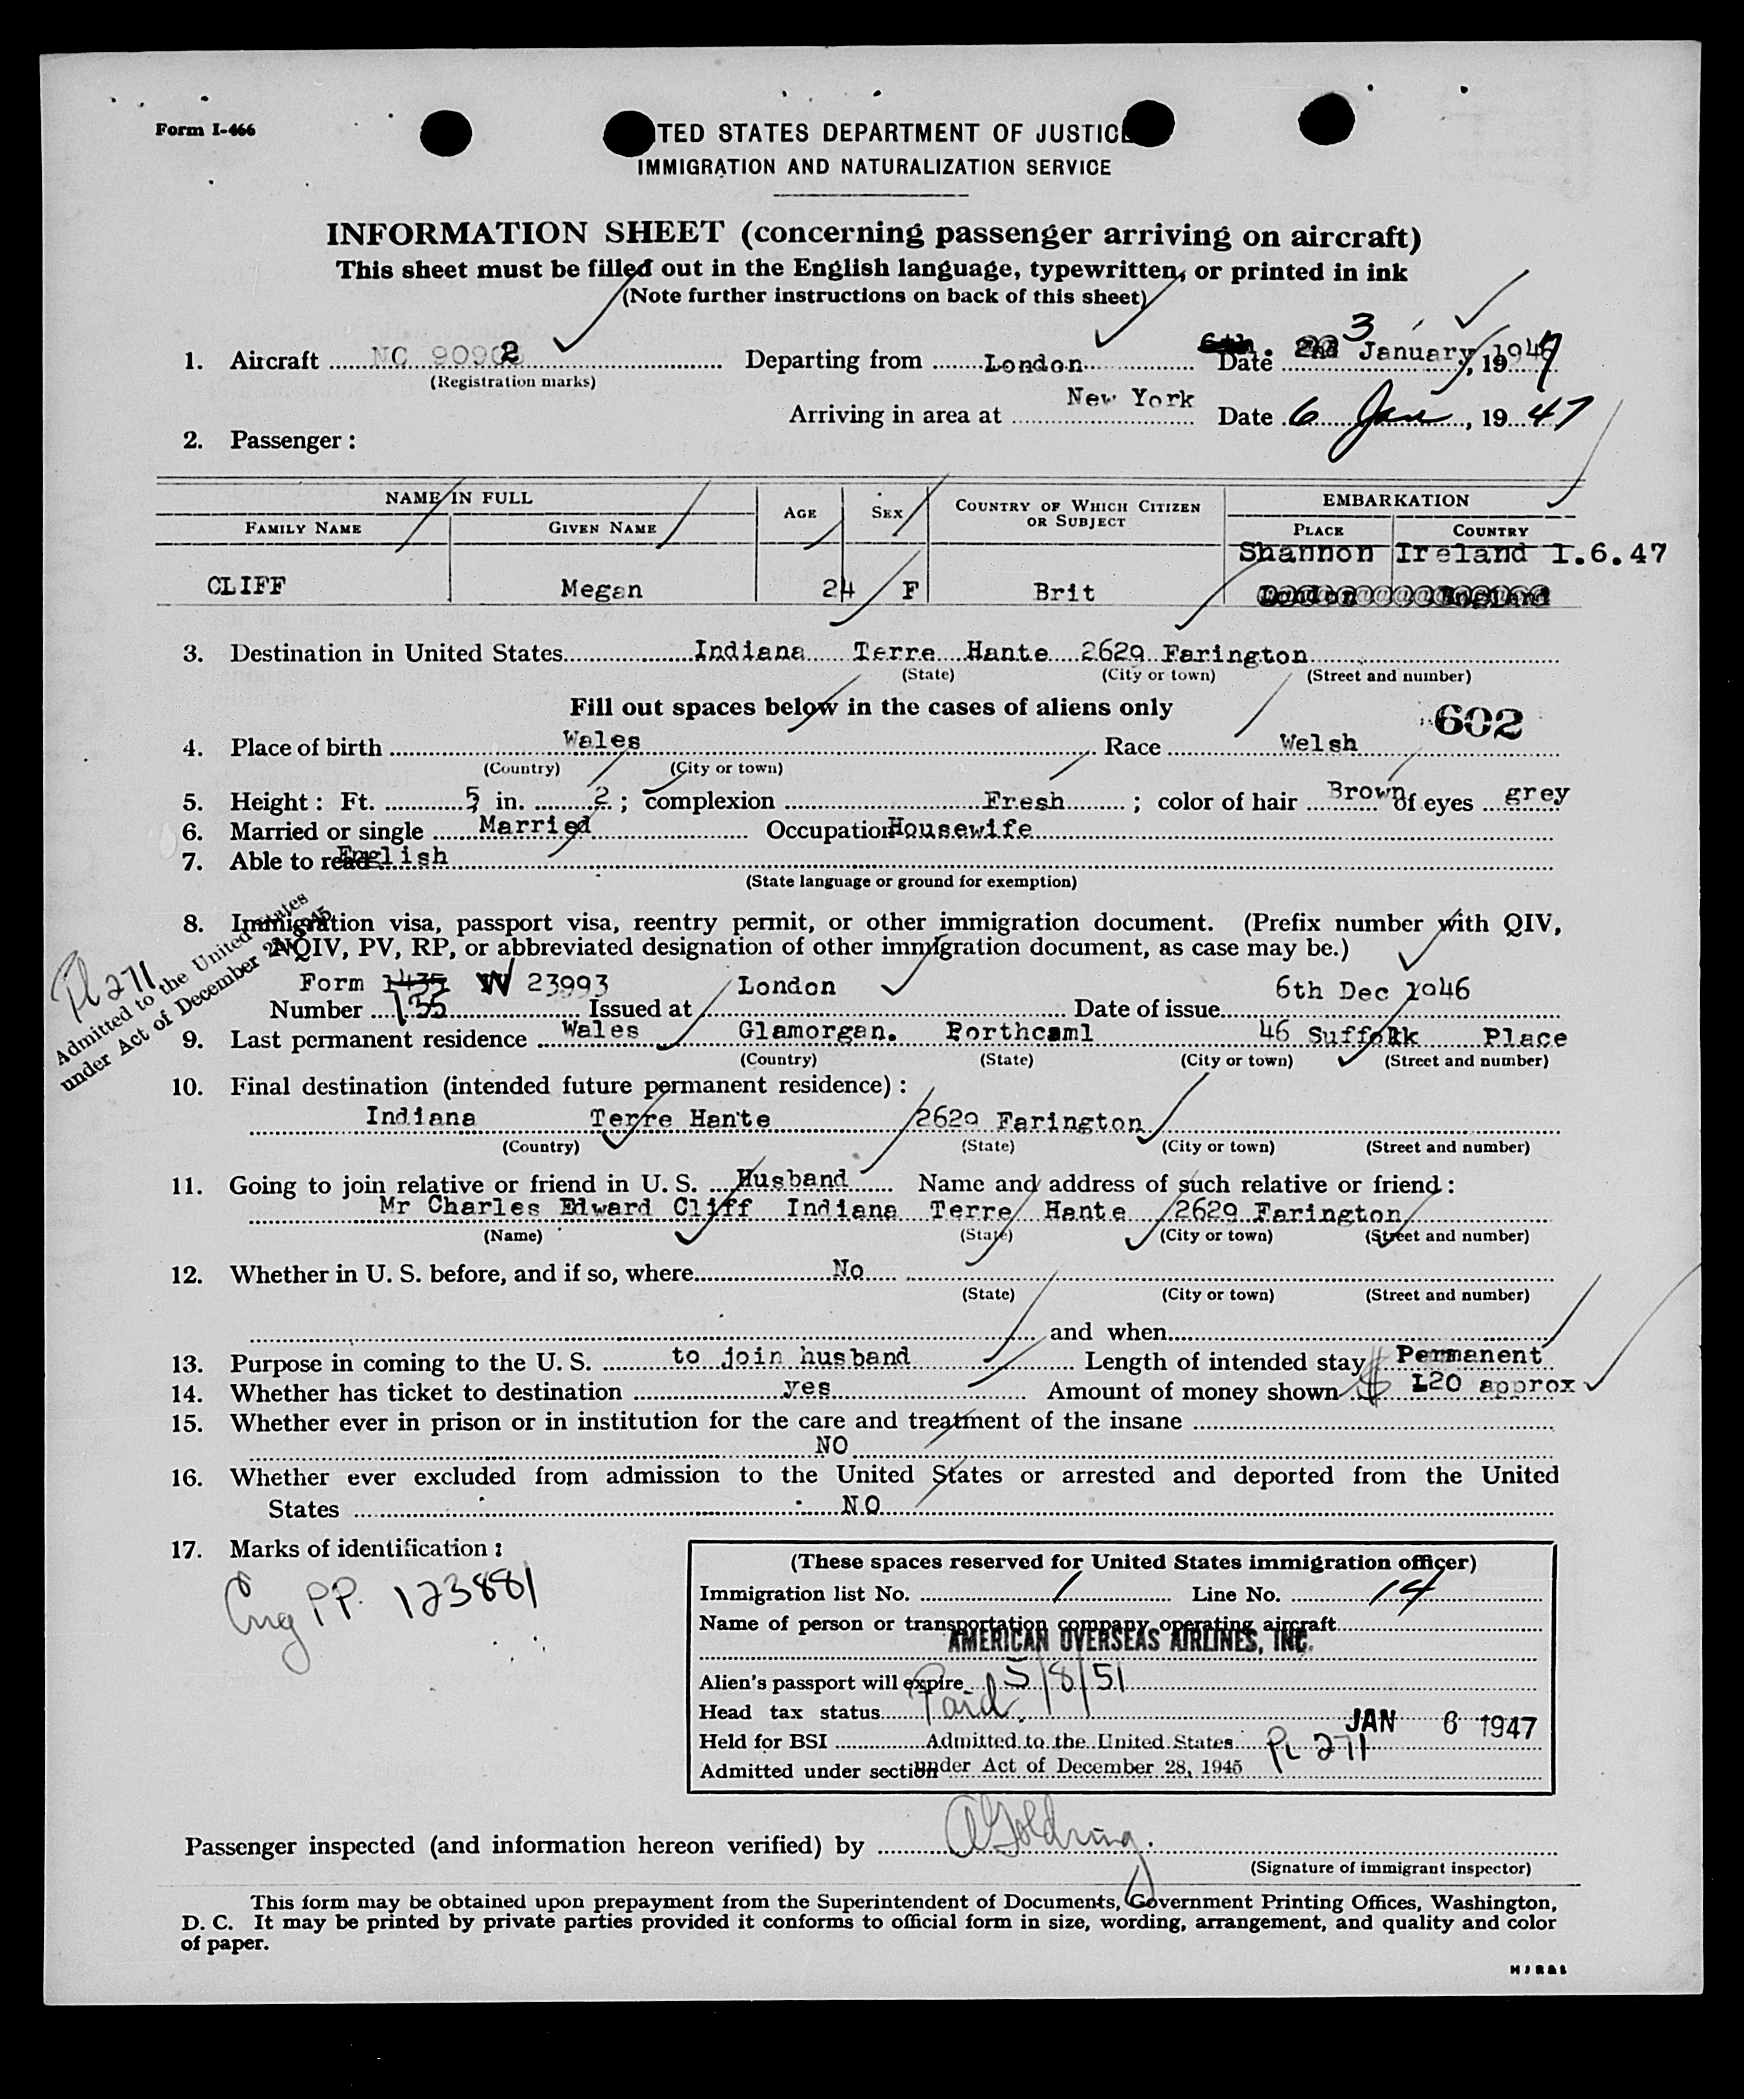 Form I-466
TED STATES DEPARTMENT OF JUSTIC
IMMIGRATION AND NATURALIZATION SERVICE
INFORMATION SHEET (concerning passenger arriving on aircraft)
This sheet must be filled out in the English language, typewritten, or printed in ink
(Note further instructions on back of this sheet)
1. Aircraft NC 90902 Departing from London Date 3 January, 1947
(Registration marks)
Arriving in area at New York Date 6 Jan, 1947
2. Passenger:
NAME IN FULL AGE SEX COUNTRY OF WHICH CITIZEN OR SUBJECT EMBARKATION
FAMILY NAME GIVEN NAME PLACE COUNTRY
Shannon Ireland I.6.47
CLIFF Megan 24 F Brit London England
3. Destination in United States Indiana Terre Hante 2629 Farington
(State) (City or town) (Street and number)
Fill out spaces below in the cases of aliens only
602
4. Place of birth Wales Race Welsh
(Country) (City or town)
5. Height: Ft. 5 in. 2; complexion Fresh; color of hair Brown of eyes grey
6. Married or single Married Occupation Housewife
7. Able to read English
(State language or ground for exemption)
8. Immigration visa, passport visa, reentry permit, or other immigration document. (Prefix number with QIV,
NQIV, PV, RP, or abbreviated designation of other immigration document, as case may be.)
PL 271
Admitted to the United States
under Act of December 28, 1945
Form 1435 W 23993 London 6th Dec 1946
Number 135 Issued at Date of issue
9. Last permanent residence Wales Glamorgan. Porthcaml 46 Suffolk Place
(Country) (State) (City or town) (Street and number)
10. Final destination (intended future permanent residence):
Indiana Terre Hante 2629 Farington
(Country) (State) (City or town) (Street and number)
11. Going to join relative or friend in U. S. Husband Name and address of such relative or friend:
Mr Charles Edward Cliff Indiana Terre Hante 2629 Farington
(Name) (State) (City or town) (Street and number)
12. Whether in U. S. before, and if so, where No
(State) (City or town) (Street and number)
and when
13. Purpose in coming to the U. S. to join husband Length of intended stay Permanent
14. Whether has ticket to destination yes Amount of money shown $ L20 approx
15. Whether ever in prison or in institution for the care and treatment of the insane
NO
16. Whether ever excluded from admission to the United States or arrested and deported from the United
States NO
17. Marks of identification:
Eng PP. 123881
(These spaces reserved for United States immigration officer)
Immigration list No. 1 Line No. 14
Name of person or transportation company operating aircraft
AMERICAN OVERSEAS AIRLINES, INC.
Alien's passport will expire 5/8/51
Head tax status Paid. JAN 6 1947
Held for BSI Admitted to the United States PL 271
Admitted under section under Act of December 28, 1945
Passenger inspected (and information hereon verified) by A Goldring.
(Signature of immigrant inspector)
This form may be obtained upon prepayment from the Superintendent of Documents, Government Printing Offices, Washington,
D. C. It may be printed by private parties provided it conforms to official form in size, wording, arrangement, and quality and color
of paper.